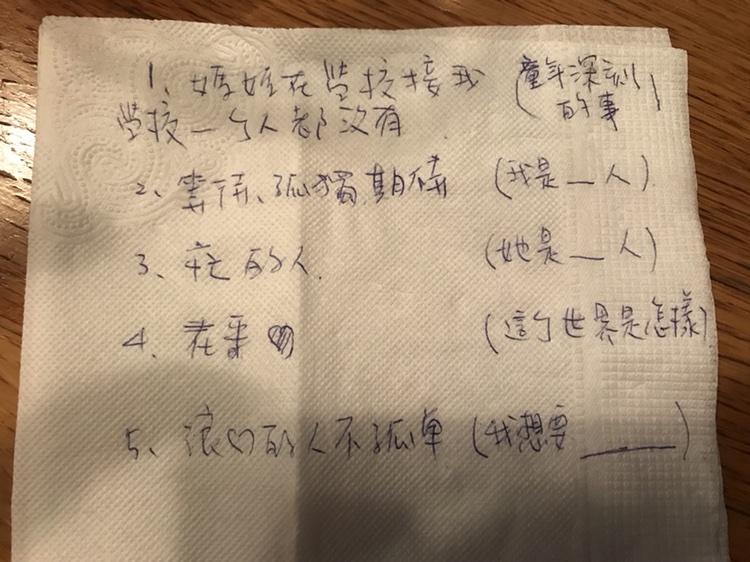 1、媽媽在学校接我 (童年深刻
学校一个人都沒有 的事)
2、等待、孤獨,期待 (我是__人)
3、的人. (她是__人)
4、在乎 (這个世界是怎樣)
5、的人不孤單 (我想要____)